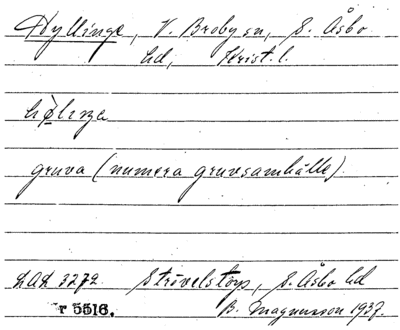 Hyllinge, V. Broby sn, S. Åsbo
hd, Krist. l.
gruva (numera gruvsamhälle).
LAL 3272. Strövelstorp, S. Åsbo hd
r 5516. B. Magnusson 1937.